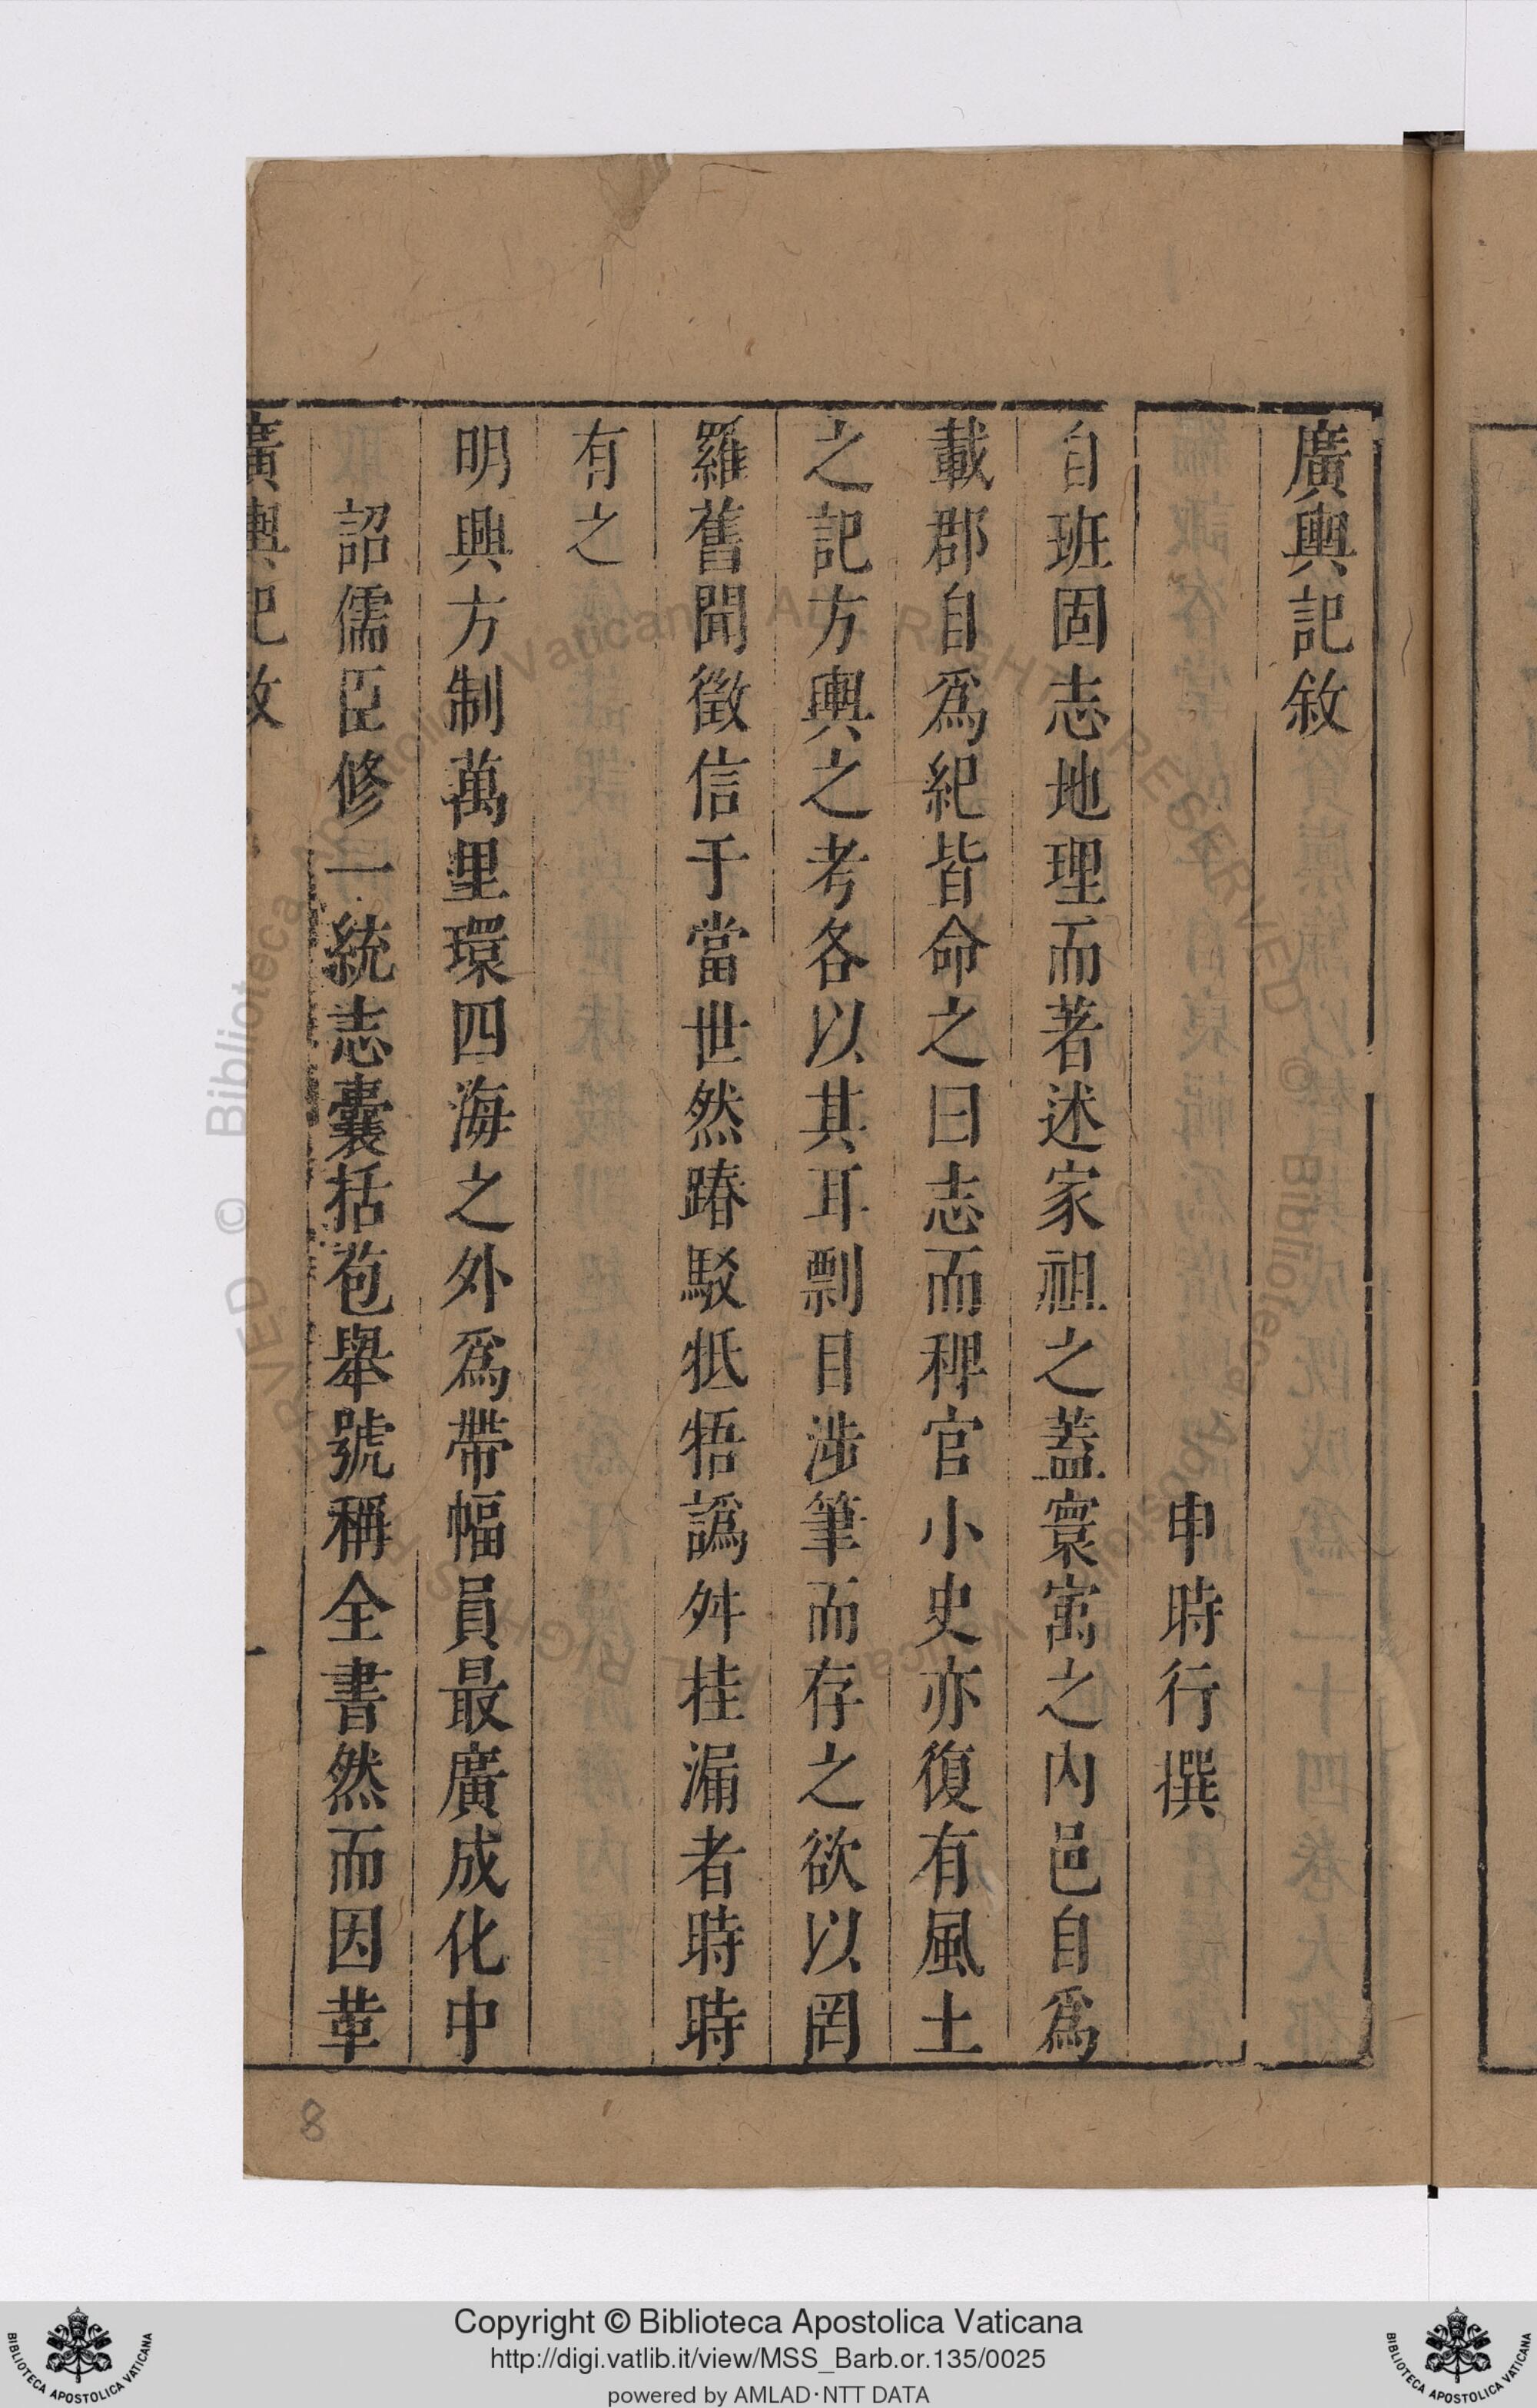 廣輿記敘
申時行撰
自班固志地理而著述家祖之蓋寰㝢之內邑自爲
載郡自爲紀皆命之曰志而稗官小史亦復有風土
之記方輿之考各以其耳剽目涉筆而存之欲以罔
羅舊聞徵信于當世然踳駁牴牾譌舛挂漏者時時
有之
明興方制萬里環四海之外爲帶幅員最廣成化中
詔儒臣修一統志囊括苞舉號稱全書然而因革
廣輿記敘
一
8
Copyright © Biblioteca Apostolica Vaticana
http://digi.vatlib.it/view/MSS_Barb.or.135/0025
powered by AMLAD·NTT DATA
BIBLIOTECA APOSTOLICA VATICANA
BIBLIOTECA APOSTOLICA VATICANA